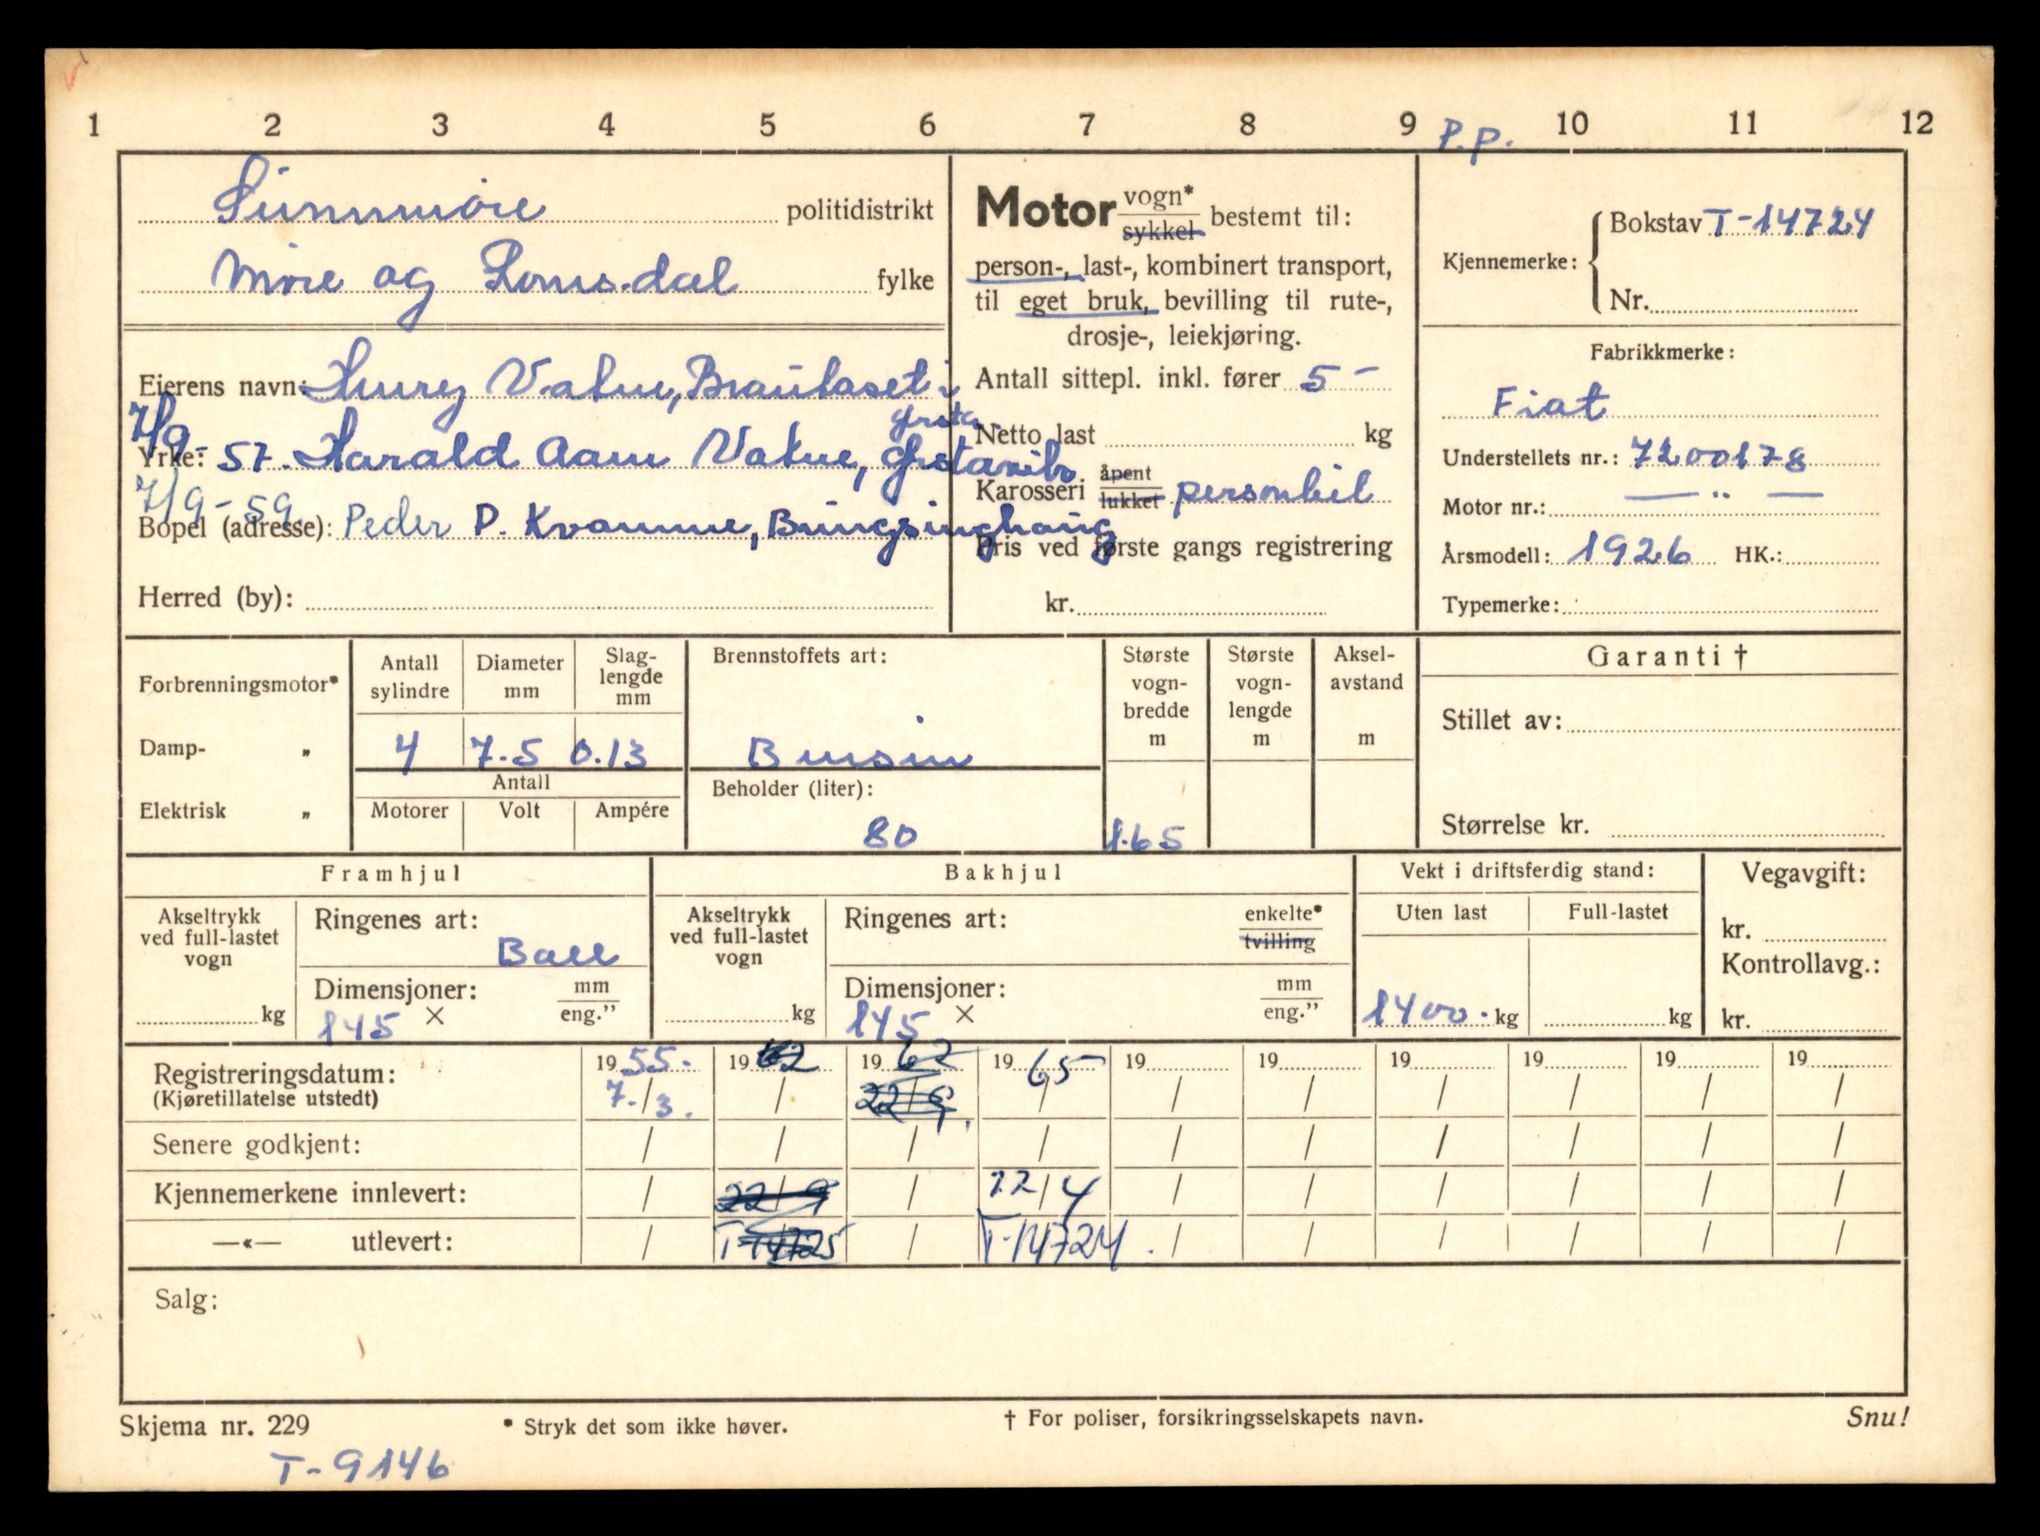 1 2 3 4 5 6 7 8 9 P.P. 10 11 12
Sunnmøre politidistrikt
Møre og Romsdal fylke
Eierens navn: Vatne,
Ørsta
7/9-57. Yrke: Harald Aam Vatne, Ørstavik
7/9-59 Bopel (adresse): Peder P. Kvamme, Bringsinghaug
Herred (by):
Motor vogn* / sykkel bestemt til:
person-, last-, kombinert transport,
til eget bruk, bevilling til rute-,
drosje-, leiekjøring.
Antall sittepl. inkl. fører 5 -
Netto last kg
Karosseri åpent / lukket personbil
Pris ved første gangs registrering
kr.
Kjennemerke: Bokstav T-14724
Nr.
Fabrikkmerke:
Fiat
Understellets nr.: 7200178
Motor nr.: — " —
Årsmodell: 1926 HK.:
Typemerke:
Forbrenningsmotor*
Damp- „
Elektrisk „
Antall sylindre 4
Diameter mm 7.5
Slag-
lengde
mm 0.13
Antall
Motorer Volt Ampére
Brennstoffets art:
Bensin
Beholder (liter):
80
Største
vogn-
bredde
m
1.65
Største
vogn-
lengde
m
Aksel-
avstand
m
Garanti †
Stillet av:
Størrelse kr.
Framhjul
Akseltrykk
ved full-lastet
vogn
kg
Ringenes art:
Ball
Dimensjoner: mm / eng."
145 ×
Bakhjul
Akseltrykk
ved full-lastet
vogn
kg
Ringenes art: enkelte* / tvilling
Dimensjoner: mm / eng."
145 ×
Vekt i driftsferdig stand:
Uten last Full-lastet
1400. kg kg
Vegavgift:
kr.
Kontrollavg.:
kr.
Registreringsdatum: 19 55. 19 62 19 62 19 65 19 19 19 19 19 19
(Kjøretillatelse utstedt) 7./3. / 22/9. / / / / / / /
Senere godkjent: / / / / / / / / / /
Kjennemerkene innlevert: / 22/9 / 22/4 / / / / / /
—«— utlevert: / T-14725 / T-14724. / / / / / /
Salg:
Skjema nr. 229 * Stryk det som ikke høver. † For poliser, forsikringsselskapets navn. Snu!
T-9146